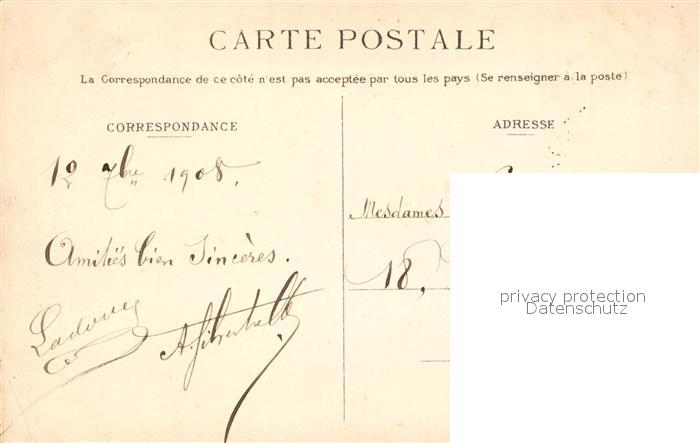 CARTE POSTALE
La Correspondance de ce côté n'est pas acceptée par tous les pays (Se renseigner à la poste)
CORRESPONDANCE
7bre 1908.
Amitiés bien Sincères.
ADRESSE
Mesdames
18,
privacy protection
Datenschutz